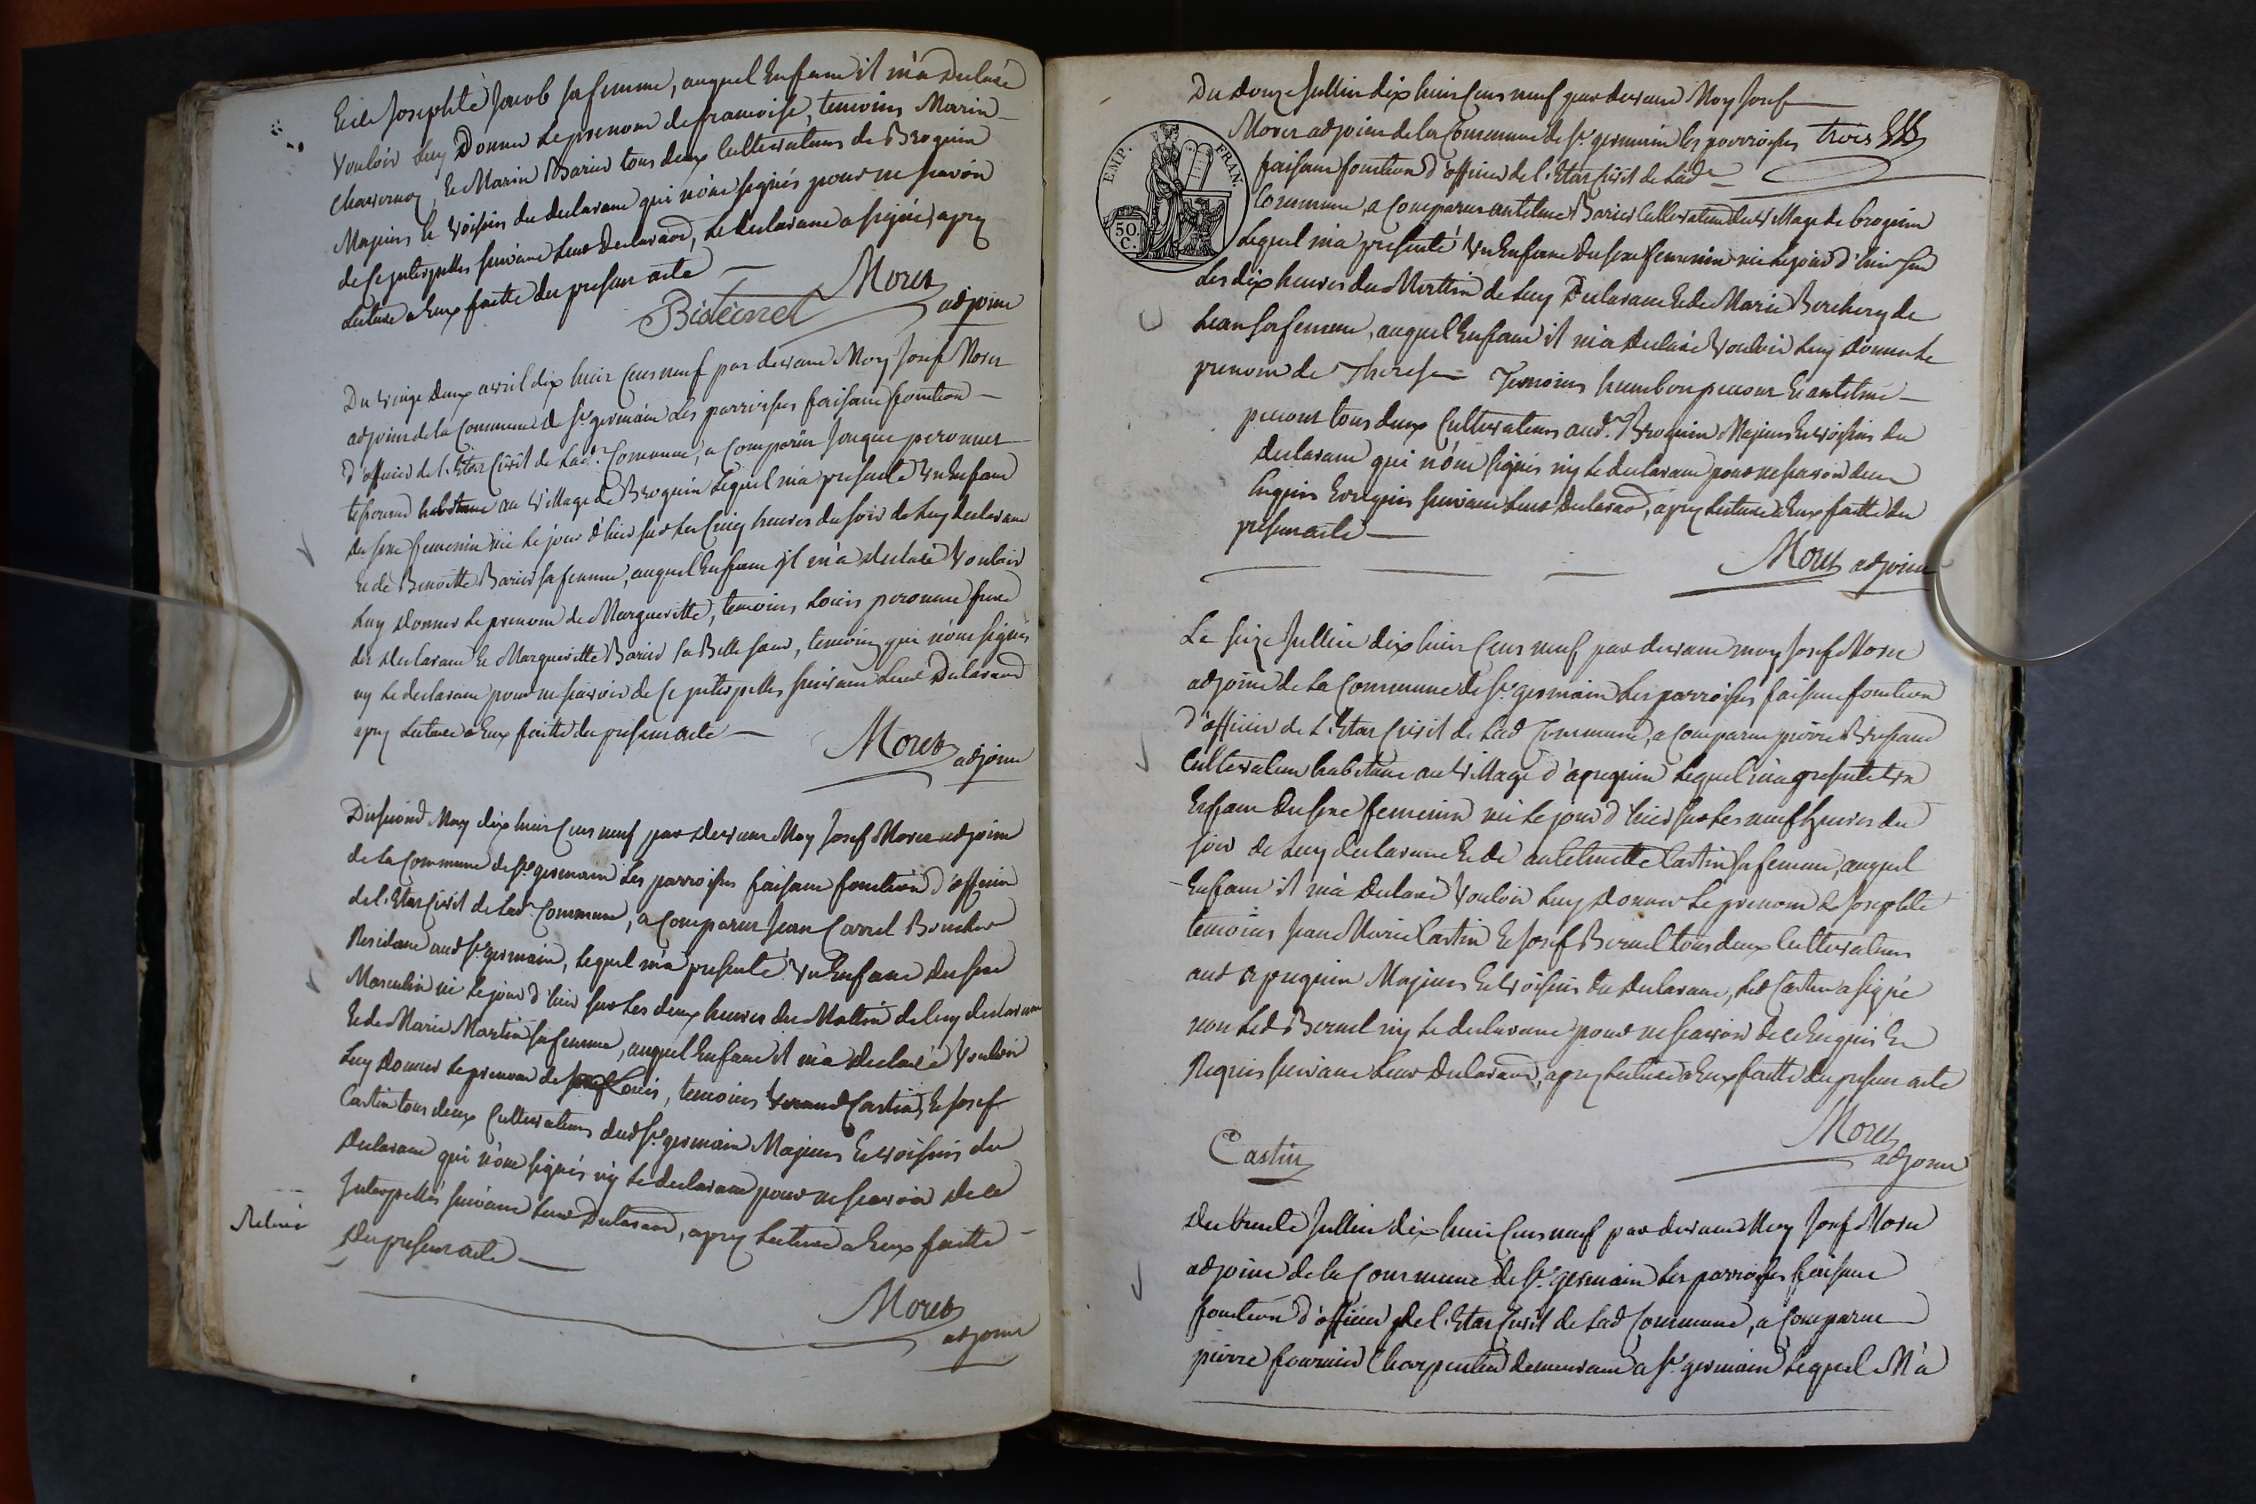 Et de Josephte Jacob sa femme, auquel Enfant il m'a Declaré
Vouloir luy Donner le prenom de francoise, temoins Marin
et Marin Barier tous deux Cultivateurs de Broguin
Majeurs et Voisins du declarant qui n'ont signés pour ne scavoir
de ce interpellés suivant leur Declaraōn, le declarant a signé, apres
lecture a Eux faitte du present acte —
Moret
adjoint
Du vingt deux avril dix huit Cens neuf par devant Moy Josef Moret
adjoint de la Commune de St. germain les parroisses faisant fonction —
d'officier de l'Etat Civil de lad. Commune, a Comparu Jaque peronnet
habitant au Village de Broguin lequel m'a presenté Un Enfant
du sexe femenin né le jour d'hier sur les Cinq heures du soir de luy declarant
et de Benoitte Barier sa femme, auquel Enfant il m'a declaré Vouloir
luy donner le prenom de Margueritte, temoins Louis peronnet frere
du declarant et Marguerite Barier sa Belle sœur, temoins qui n'ont signés
ny le declarant pour ne scavoir de ce interpellés suivant leur Declaraōn
apres lecture a Eux faitte du present acte —
Moret
adjoint
Du second May dix huit Cens neuf par devant Moy Josef Moret adjoint
de la Commune de St. germain les parroisses faisant fonction d'officier
de l'Etat Civil de lad. Commune, a Comparu Jean Carrel
Residant aud St. germain, lequel m'a presenté Un Enfant du sexe
Masculin né le jour d'hier sur les deux heures du Mattin de luy declarant
Et de Marie Martin sa femme, auquel Enfant il m'a declaré Vouloir
luy donner le prenom de Louis, temoins Castin et Josef
Castin tous deux Cultivateurs dud St. germain Majeurs et voisins du
declarant qui n'ont signés ny le declarant pour ne scavoir de ce
Interpellés suivant leur Declaraōn, apres lecture a Eux faitte —
du present acte —
Moret
adjoint
Du douze Jullier dix huit Cens neuf par devant Moy Josef —
Moret adjoint de la Commune de St. germain les parroisses trois
faisant fonction d'officier de l'Etat Civil de lad. —
EMP. FRAN.
50. C.
Commune, a Comparu antelme Barier Cultivateur du Village de broguin
lequel m'a presenté Un Enfant du sexe femenin né le jour d'hier sur
les dix heures du Mattin de luy Declarant Et de Marie
sa femme, auquel Enfant il m'a declaré Vouloir luy donner le
prenom de Therese — Temoins et antelme —
tous deux Cultivateurs aud. Broguin Majeurs et voisins du
declarant qui n'ont signés ny le declarant pour ne scavoir de ce
Enquis et requis suivant leur Declaraōn, apres lecture a Eux faitte du
present acte —
Moret adjoint
Le seize Jullier dix huit Cens neuf par devant moy Josef Moret
adjoint de la Commune de St. germain les parroisses faisant fonction
d'officier de l'Etat Civil de lad Commune, a Comparu pierre
Cultivateur habitant au Village d'apreguin lequel m'a presenté Un
Enfant du sexe femenin né le jour d'hier sur les neuf heures du
soir de luy declarant Et de Castin sa femme, auquel
Enfant il m'a declaré Vouloir luy donner le prenom de Josephte
temoins Jean Marie Castin et Josef Bernel tous deux Cultivateurs
aud apreguin Majeurs et voisins du declarant, led Castin a signé
non led Bernel ny le declarant pour ne scavoir de ce Enquis et
Requis suivant leur Declaraōn, apres lecture a Eux faitte du present acte
Moret
adjoint
Castin
Du trente Jullier dix huit Cens neuf par devant Moy Josef Moret
adjoint de la Commune de St. germain les parroisses faisant
fonction d'officier de l'Etat Civil de lad Commune, a Comparu
pierre fournier Charpentier demeurant a St. germain lequel M'a